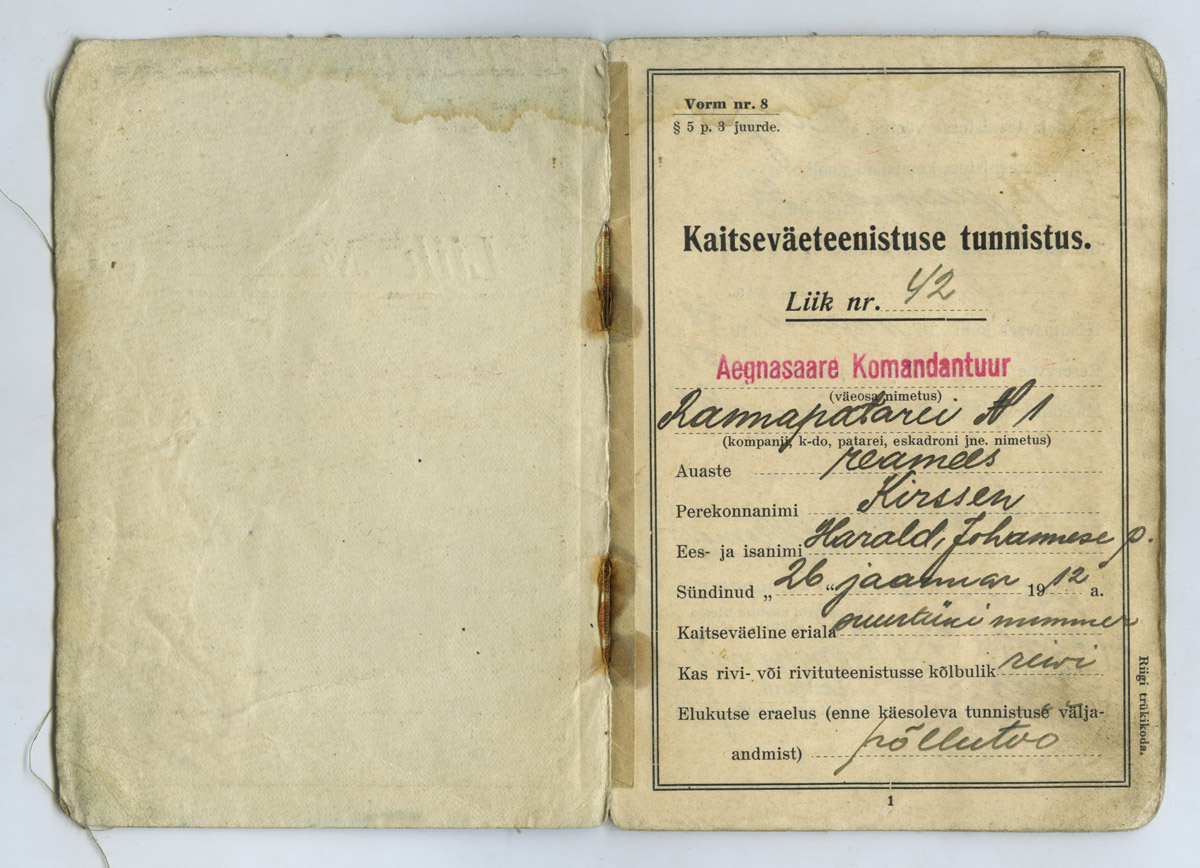 Vorm nr. 8
§ 5 p. 3 juurde.
Kaitseväeteenistuse tunnistus.
Liik nr. 42
Aegnasaare Komandantuur
(väeosa nimetus)
Rannapatarei № 1
(kompanij, k-do, patarei, eskadroni jne. nimetus)
Auaste reamees
Perekonnanimi Kirssen
Ees- ja isanimi Harald, Johannese p.
Sündinud „26“ jaanuar 1912 a.
Kaitseväeline eriala suurtüki nummer
Kas rivi- või rivituteenistusse kõlbulik reivi
Elukutse eraelus (enne käesoleva tunnistuse välja-
andmist) põllutöö
Riigi trükikoda.
1